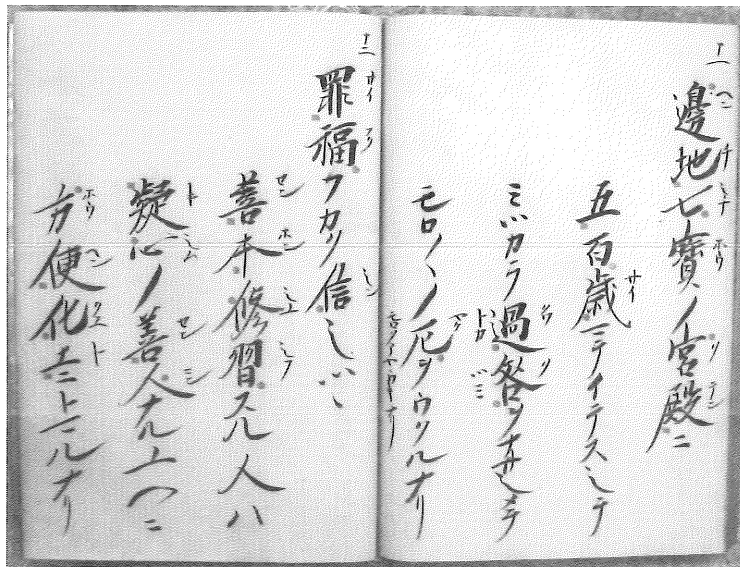 十一
邊地七寶ノ宮殿ニ
五百歳マテイテスシテ
ミツカラ過咎ヲナサシメテ
モロ〱ノ厄ヲウクルナリ
十二
罪福フカク信シツヽ
善本修習スル人ハ
疑心ノ善人ナルユヘニ
方便化土ニトマルナリ